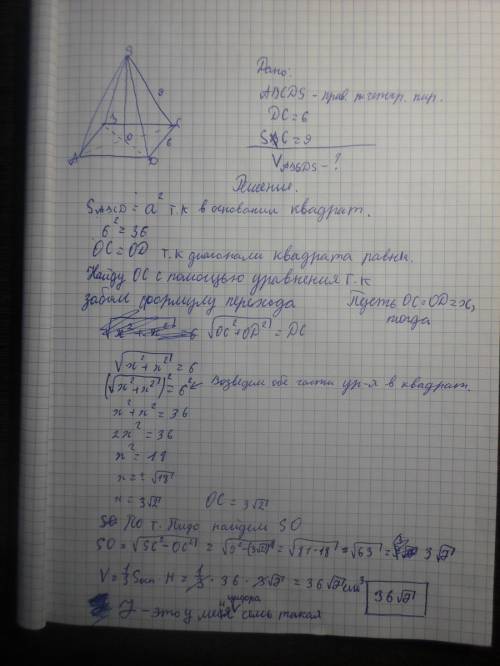 S
9
B
C
O
6
A
D
Дано:
ABCDS - прав. четыр. пир.
DC = 6
SC = 9
V ABCDS - ?
Решение.
S ABCD = a² т.к в основании квадрат.
6² = 36
OC = OD т.к диагонали квадрата равны.
Найду OC с помощью уравнения т.к
забыл формулу перехода Пусть OC = OD = x,
тогда
√(OC² + OD²) = DC
√(x² + x²) = 6
(√(x² + x²))² = 6² ← Возведем обе части ур-я в квадрат.
x² + x² = 36
2x² = 36
x² = 18
x = ± √18
x = 3√2 OC = 3√2
По т. Пифо найдем SO
SO = √(SC² - OC²) = √(9² - (3√2)²) = √(81 - 18) = √63 = 3√7
V = 1/3 Sосн · H = 1/3 · 36 · 3√7 = 36√7 cm³ 36√7
7 - это у меня цифора семь такая